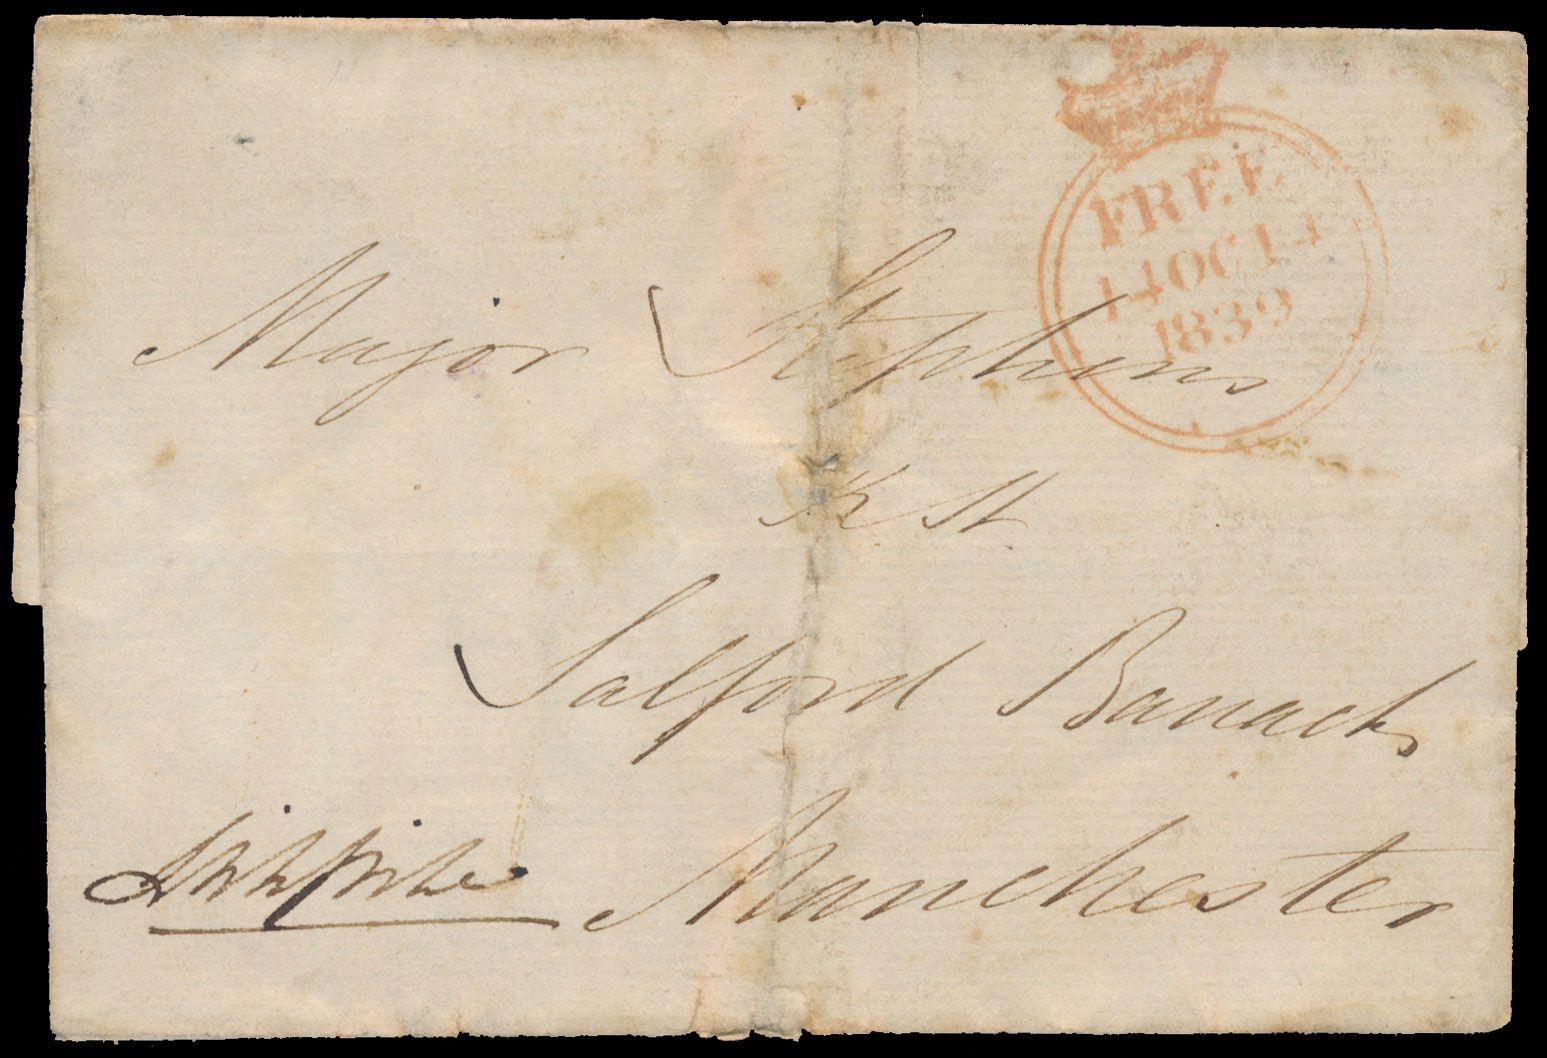 FREE
14 OC 14
1839
Major Stephens
K St.
Salford Barracks
Manchester